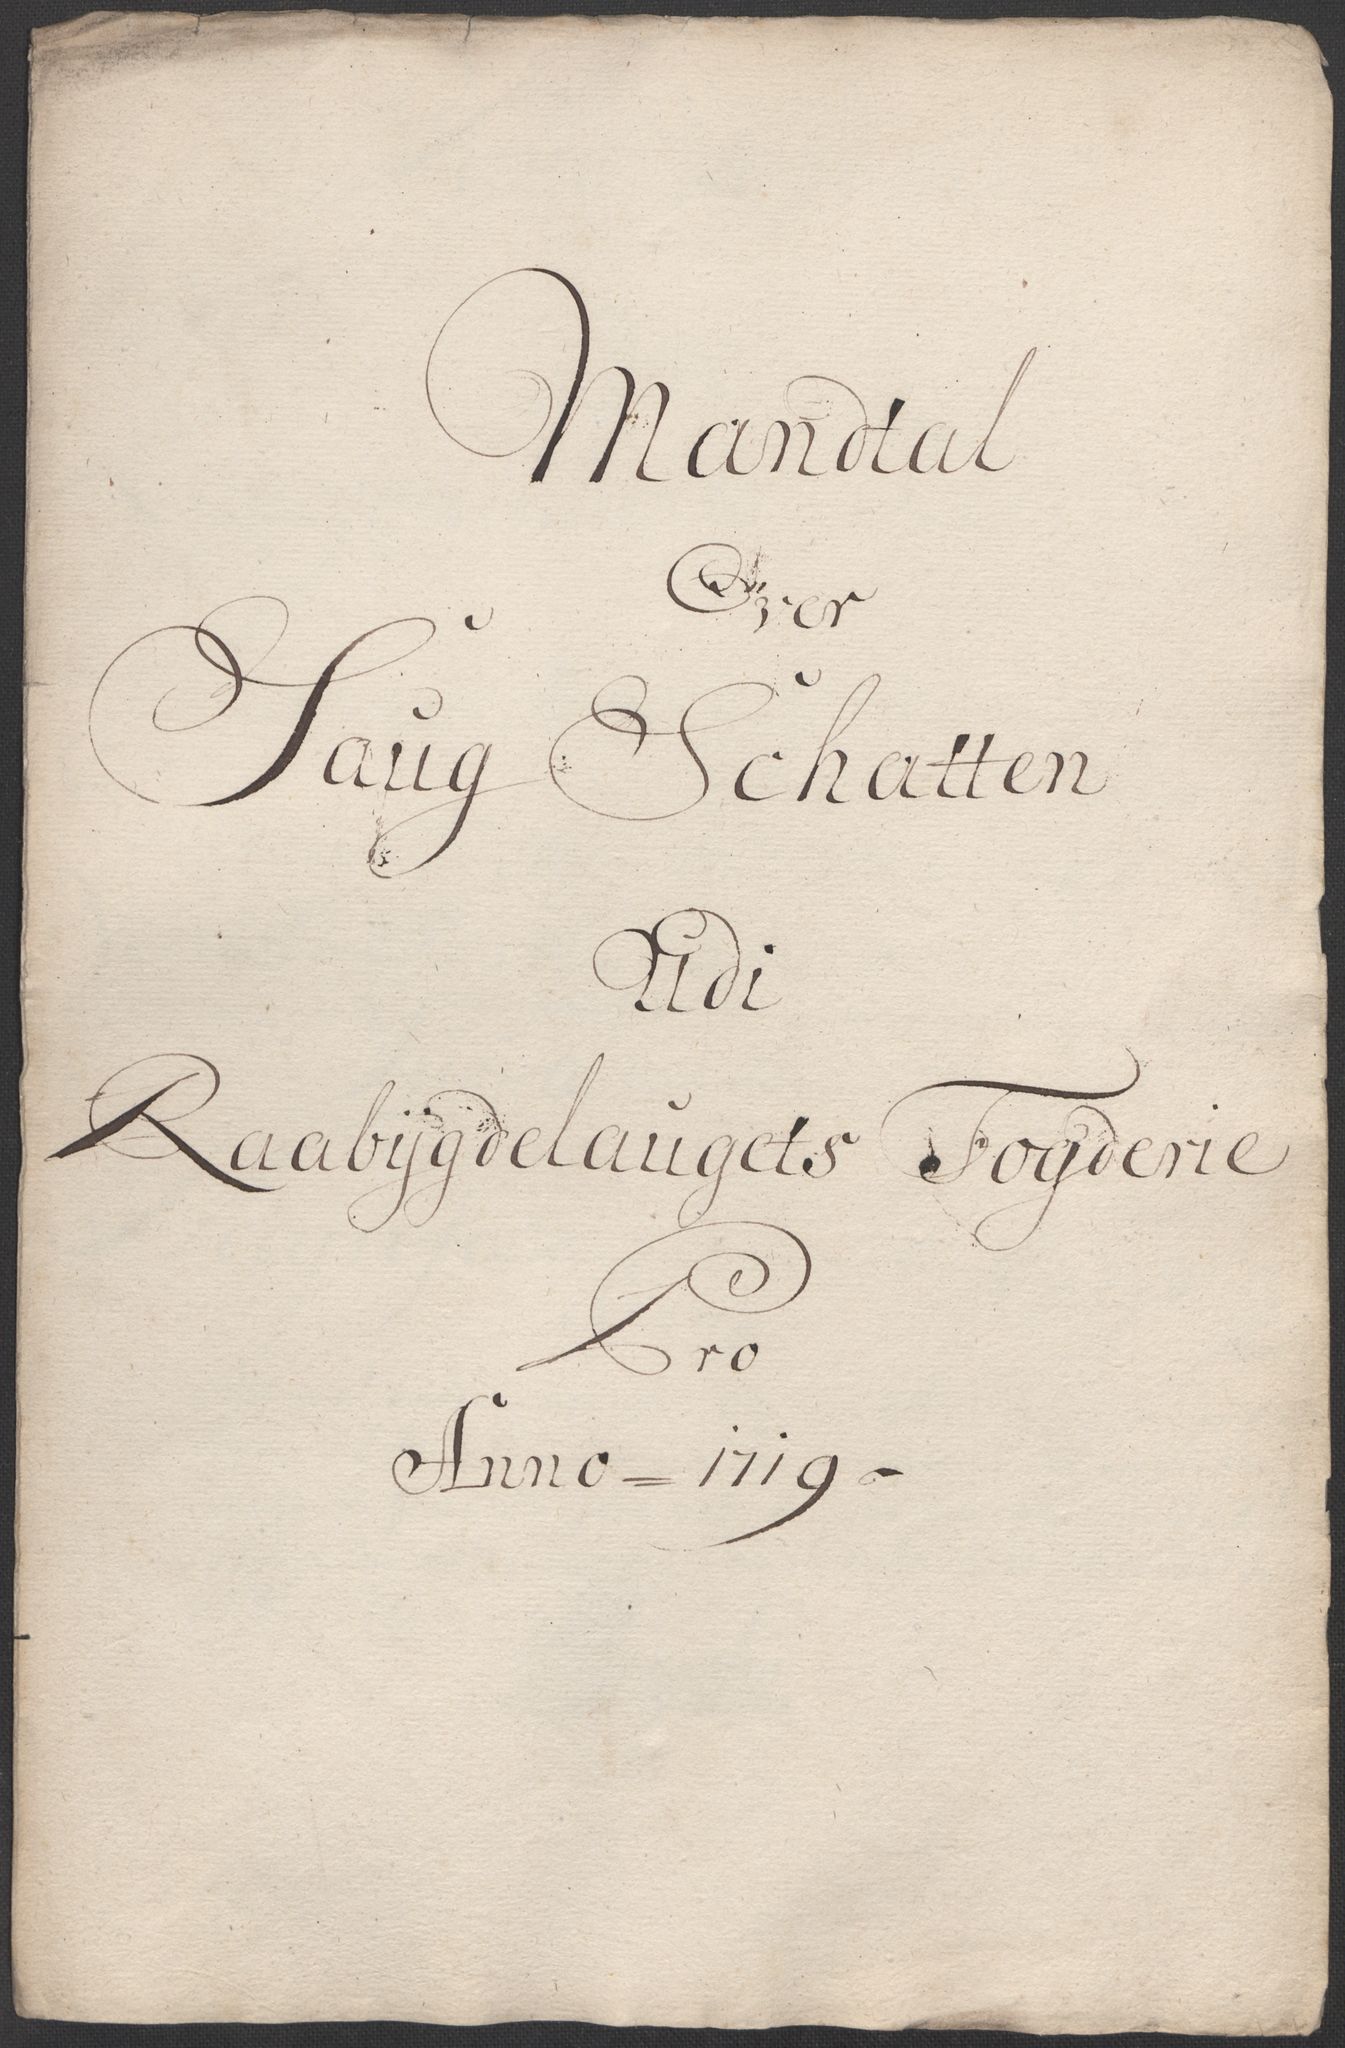 Mandtal
Over
Saug Schatten
Udi
Raabÿgdelaugets Fogderie
Pro
Anno = 1719 -